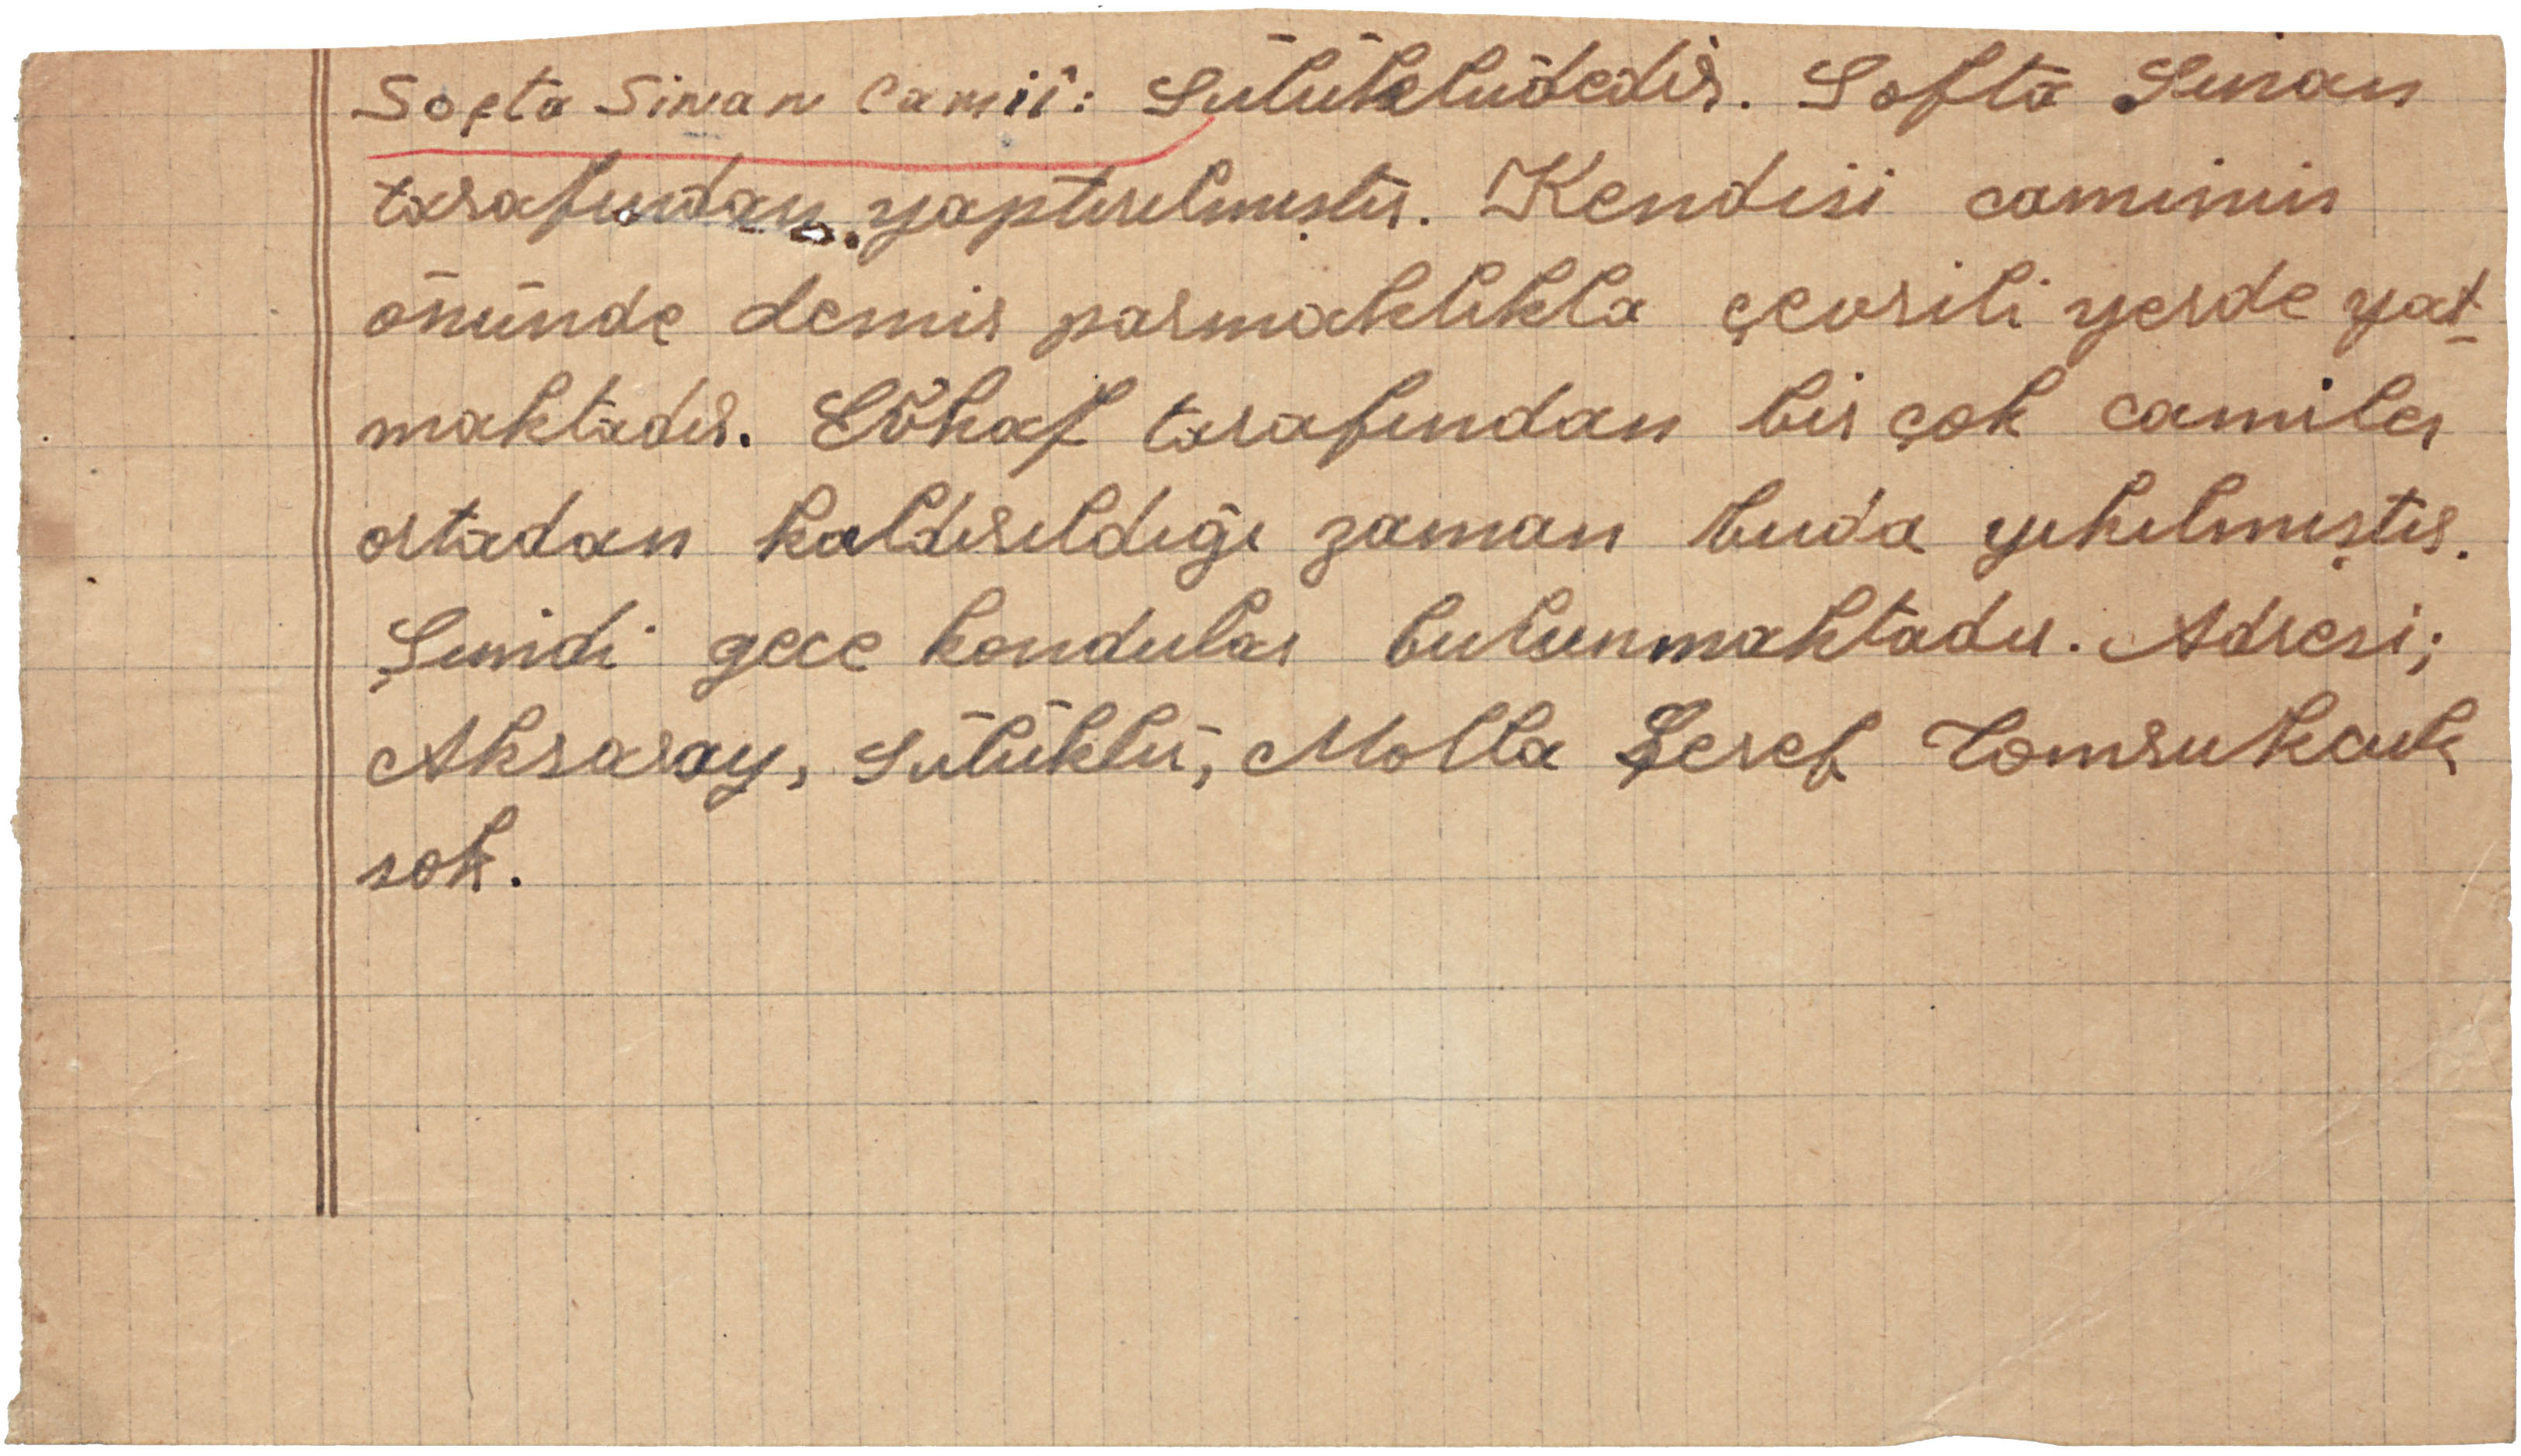 Softa Sinan Camii: Sülüklüdedir. Softa Sinan
tarafından yaptırılmıştır. Kendisi caminin
önünde demir parmaklıkla çevrili yerde yat-
maktadır. Evkaf tarafından bir çok camiler
ortadan kaldırıldığı zaman buda yıkılmıştır.
Şimdi gece kondular bulunmaktadır. Adresi;
Aksaray, Sülüklü, Molla Şeref Tomrukcuk
sok.